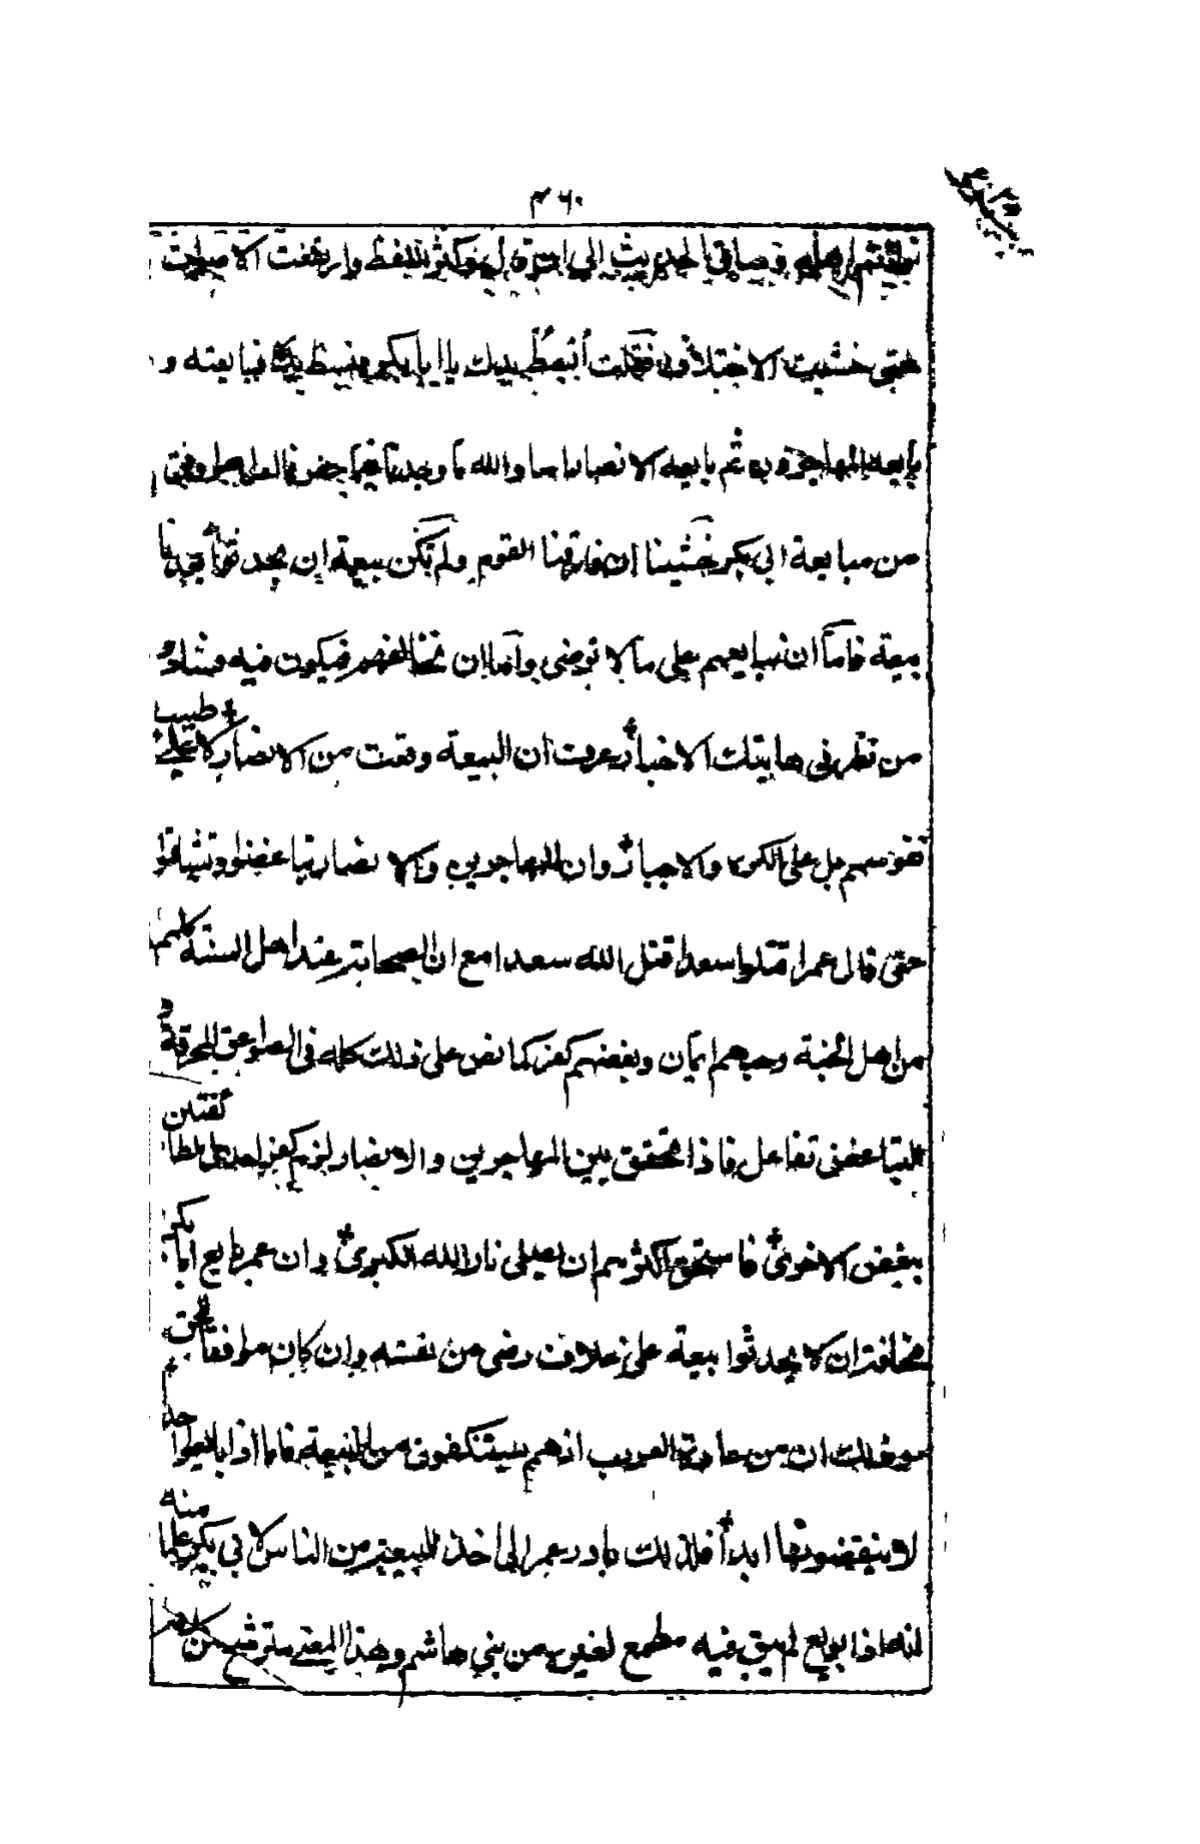 ۴۶۰
وساق الحديث إلى فكثر اللفظ وارتفعت الاصوات
حتى خشيت الاختلاف فقلت أبسط يدك يا ابا بكر فبسط يده فبايعته و
بايعه المهاجرون ثم بايعه الانصار اما والله ما وجدنا فيما حضرنا امرا اوفق
من مبايعة ابي بكر خشينا ان فارقنا القوم ولم تكن بيعة ان يحدثوا بعدنا
بيعة فاما ان نبايعهم على ما لا نرضى واما ان نخالفهم فيكون فيه فساد
من نظر في هاتيك الاخبار عرف ان البيعة وقعت من الانصار لا على طيب
نفوسهم بل على الكره والاجبار وان المهاجرين والانصار تباغضوا وتشاتموا
حتى قال عمر اقتلوا سعدا قتل الله سعدا مع ان الصحابة عند اهل السنة كلهم
من اهل الجنة وحبهم ايمان وبغضهم كفر كما نص على ذلك كله في الصواعق المحرقة
فالتباغض تفاعل فاذا تحقق بين المهاجرين والانصار لزم كفر احدى الطائفتين
ببغض الاخرى فاستحق اكثرهم ان يصلى نار الله الكبرى وان عمر بايع ابا بكر
مخافة ان لا يحدثوا بيعة على خلاف رضى من نفسه وان كان موافقا للحق
وذلك ان من عادة العرب انهم يستنكفون من البيعة فاذا بايعوا احدا
لا ينقضونها ابدا فلذلك بادر عمر الى اخذ البيعة من الناس لابي بكر علما منه
انه اذا بويع لم يبق فيه مطمع لغيره من بني هاشم وهذا